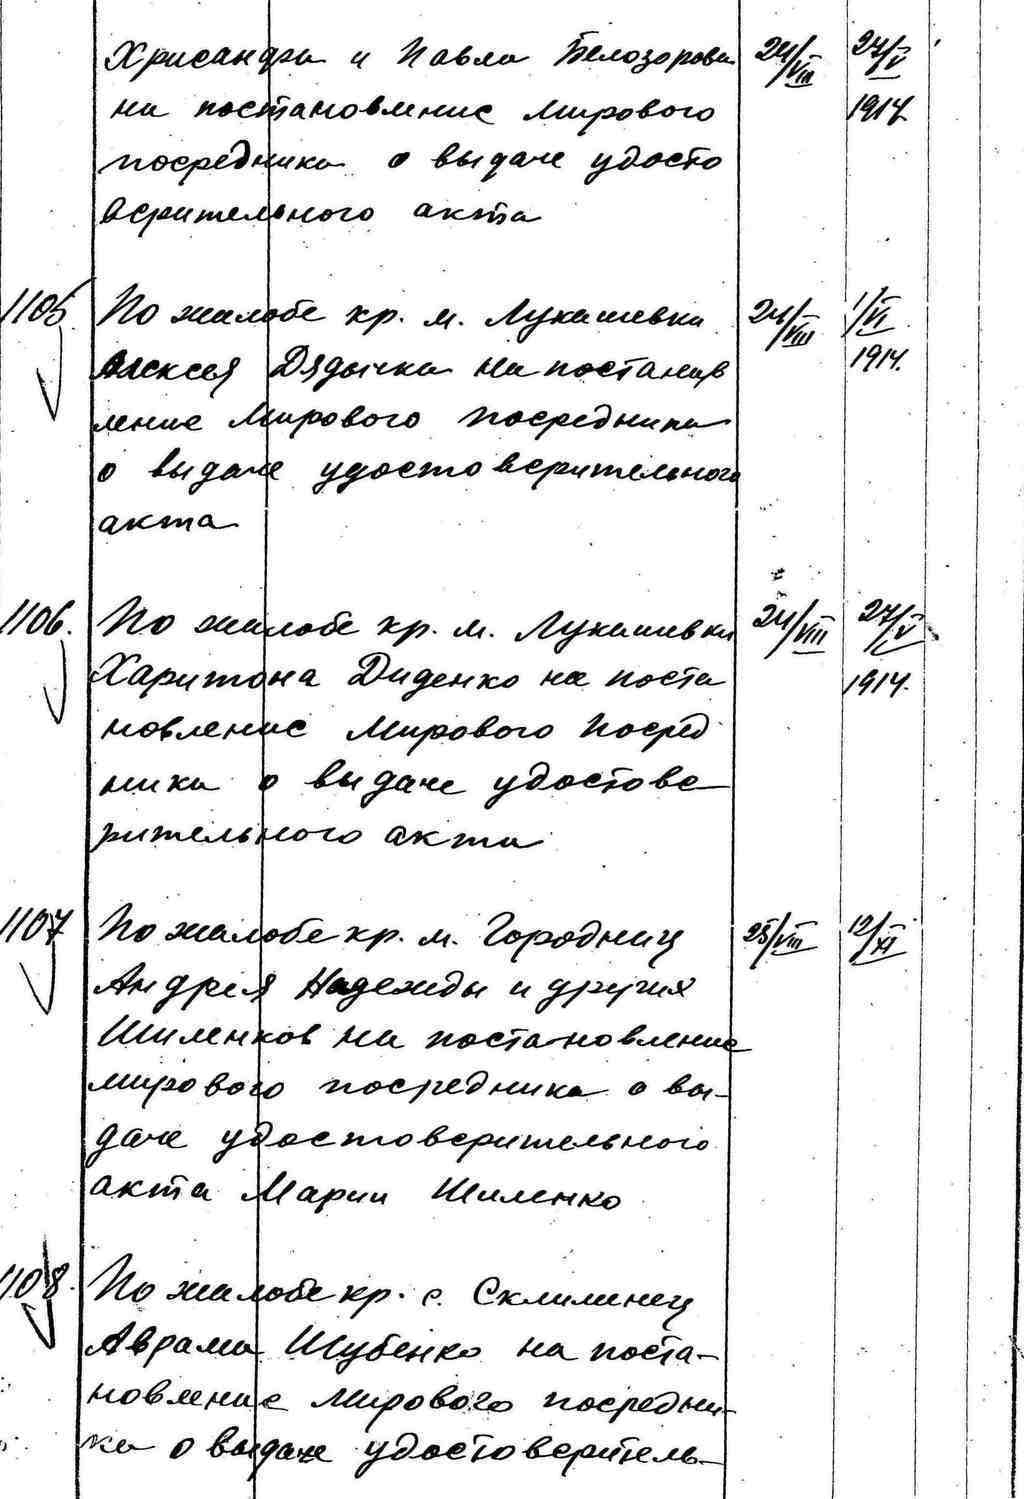 Хрисанфа и Павла Белозоровы 24/VIII 27/V
на постановление Мирового 1914
посредника о выдаче удосто
верительного акта
1105 По жалобе кр. м. Лукашевки 24/VIII 1/VI
Алексея Дядычка на постанов 1914.
ление Мирового посредника
о выдаче удостоверительного
акта
1106. По жалобе кр. м. Лукашевки 24/VIII 27/V
Харитона Диденко на поста 1914.
новление Мирового посред
ника о выдаче удостове
рительного акта
1107 По жалобе кр. м. Городниц 25/VIII 12/XI
Андрея Надежды и других
Шиленков на постановление
мирового посредника о вы-
даче удостоверительного
акта Марии Шиленко
1108. По жалобе кр. с. Склименец
Аврама Шубенко на поста-
новление Мирового посредни-
ка о выдаче удостоверитель-